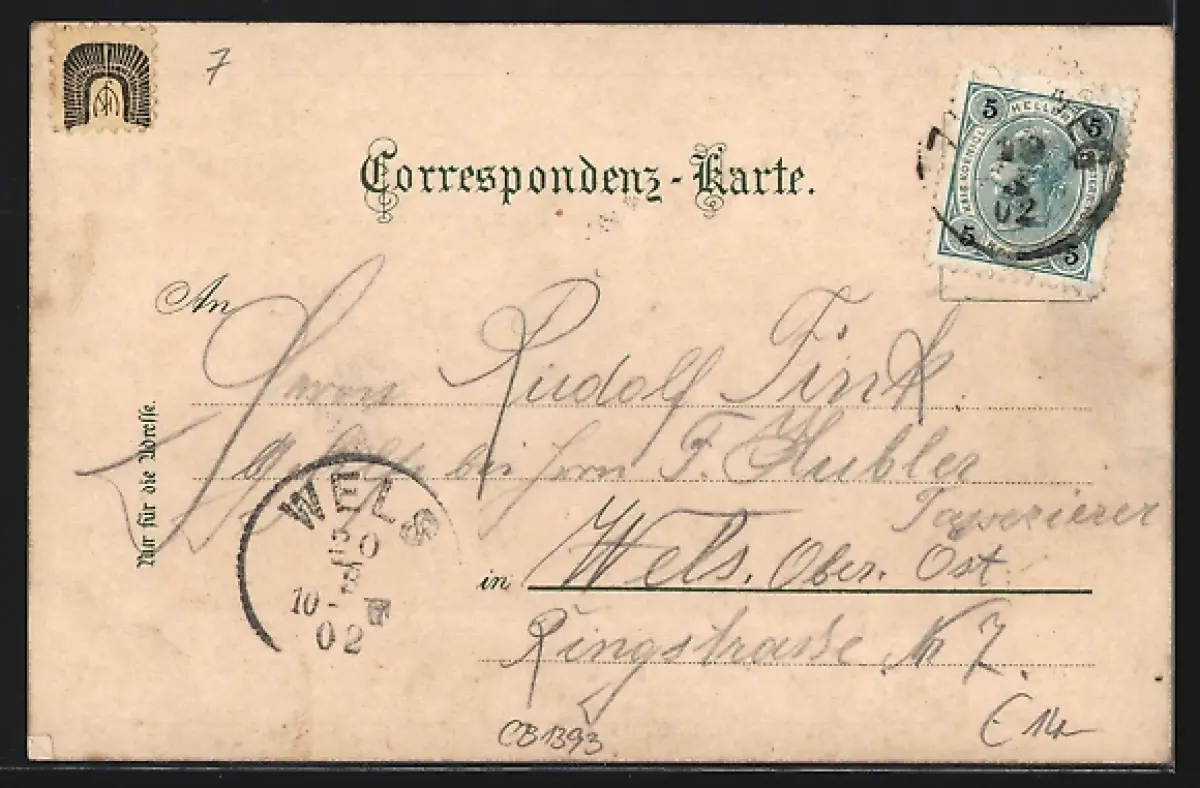 7
Correspondenz-Karte.
5 HELLER 5
10
02
5 5
An
Herrn Rudolf Fink
Gehilfe bei Herrn F. Hubler
Tapezierer
in Wels. Ober. Ost
Ringstrasse Nr 7.
Nur für die Adresse.
WELS
10-
02
CB1393
€ 14